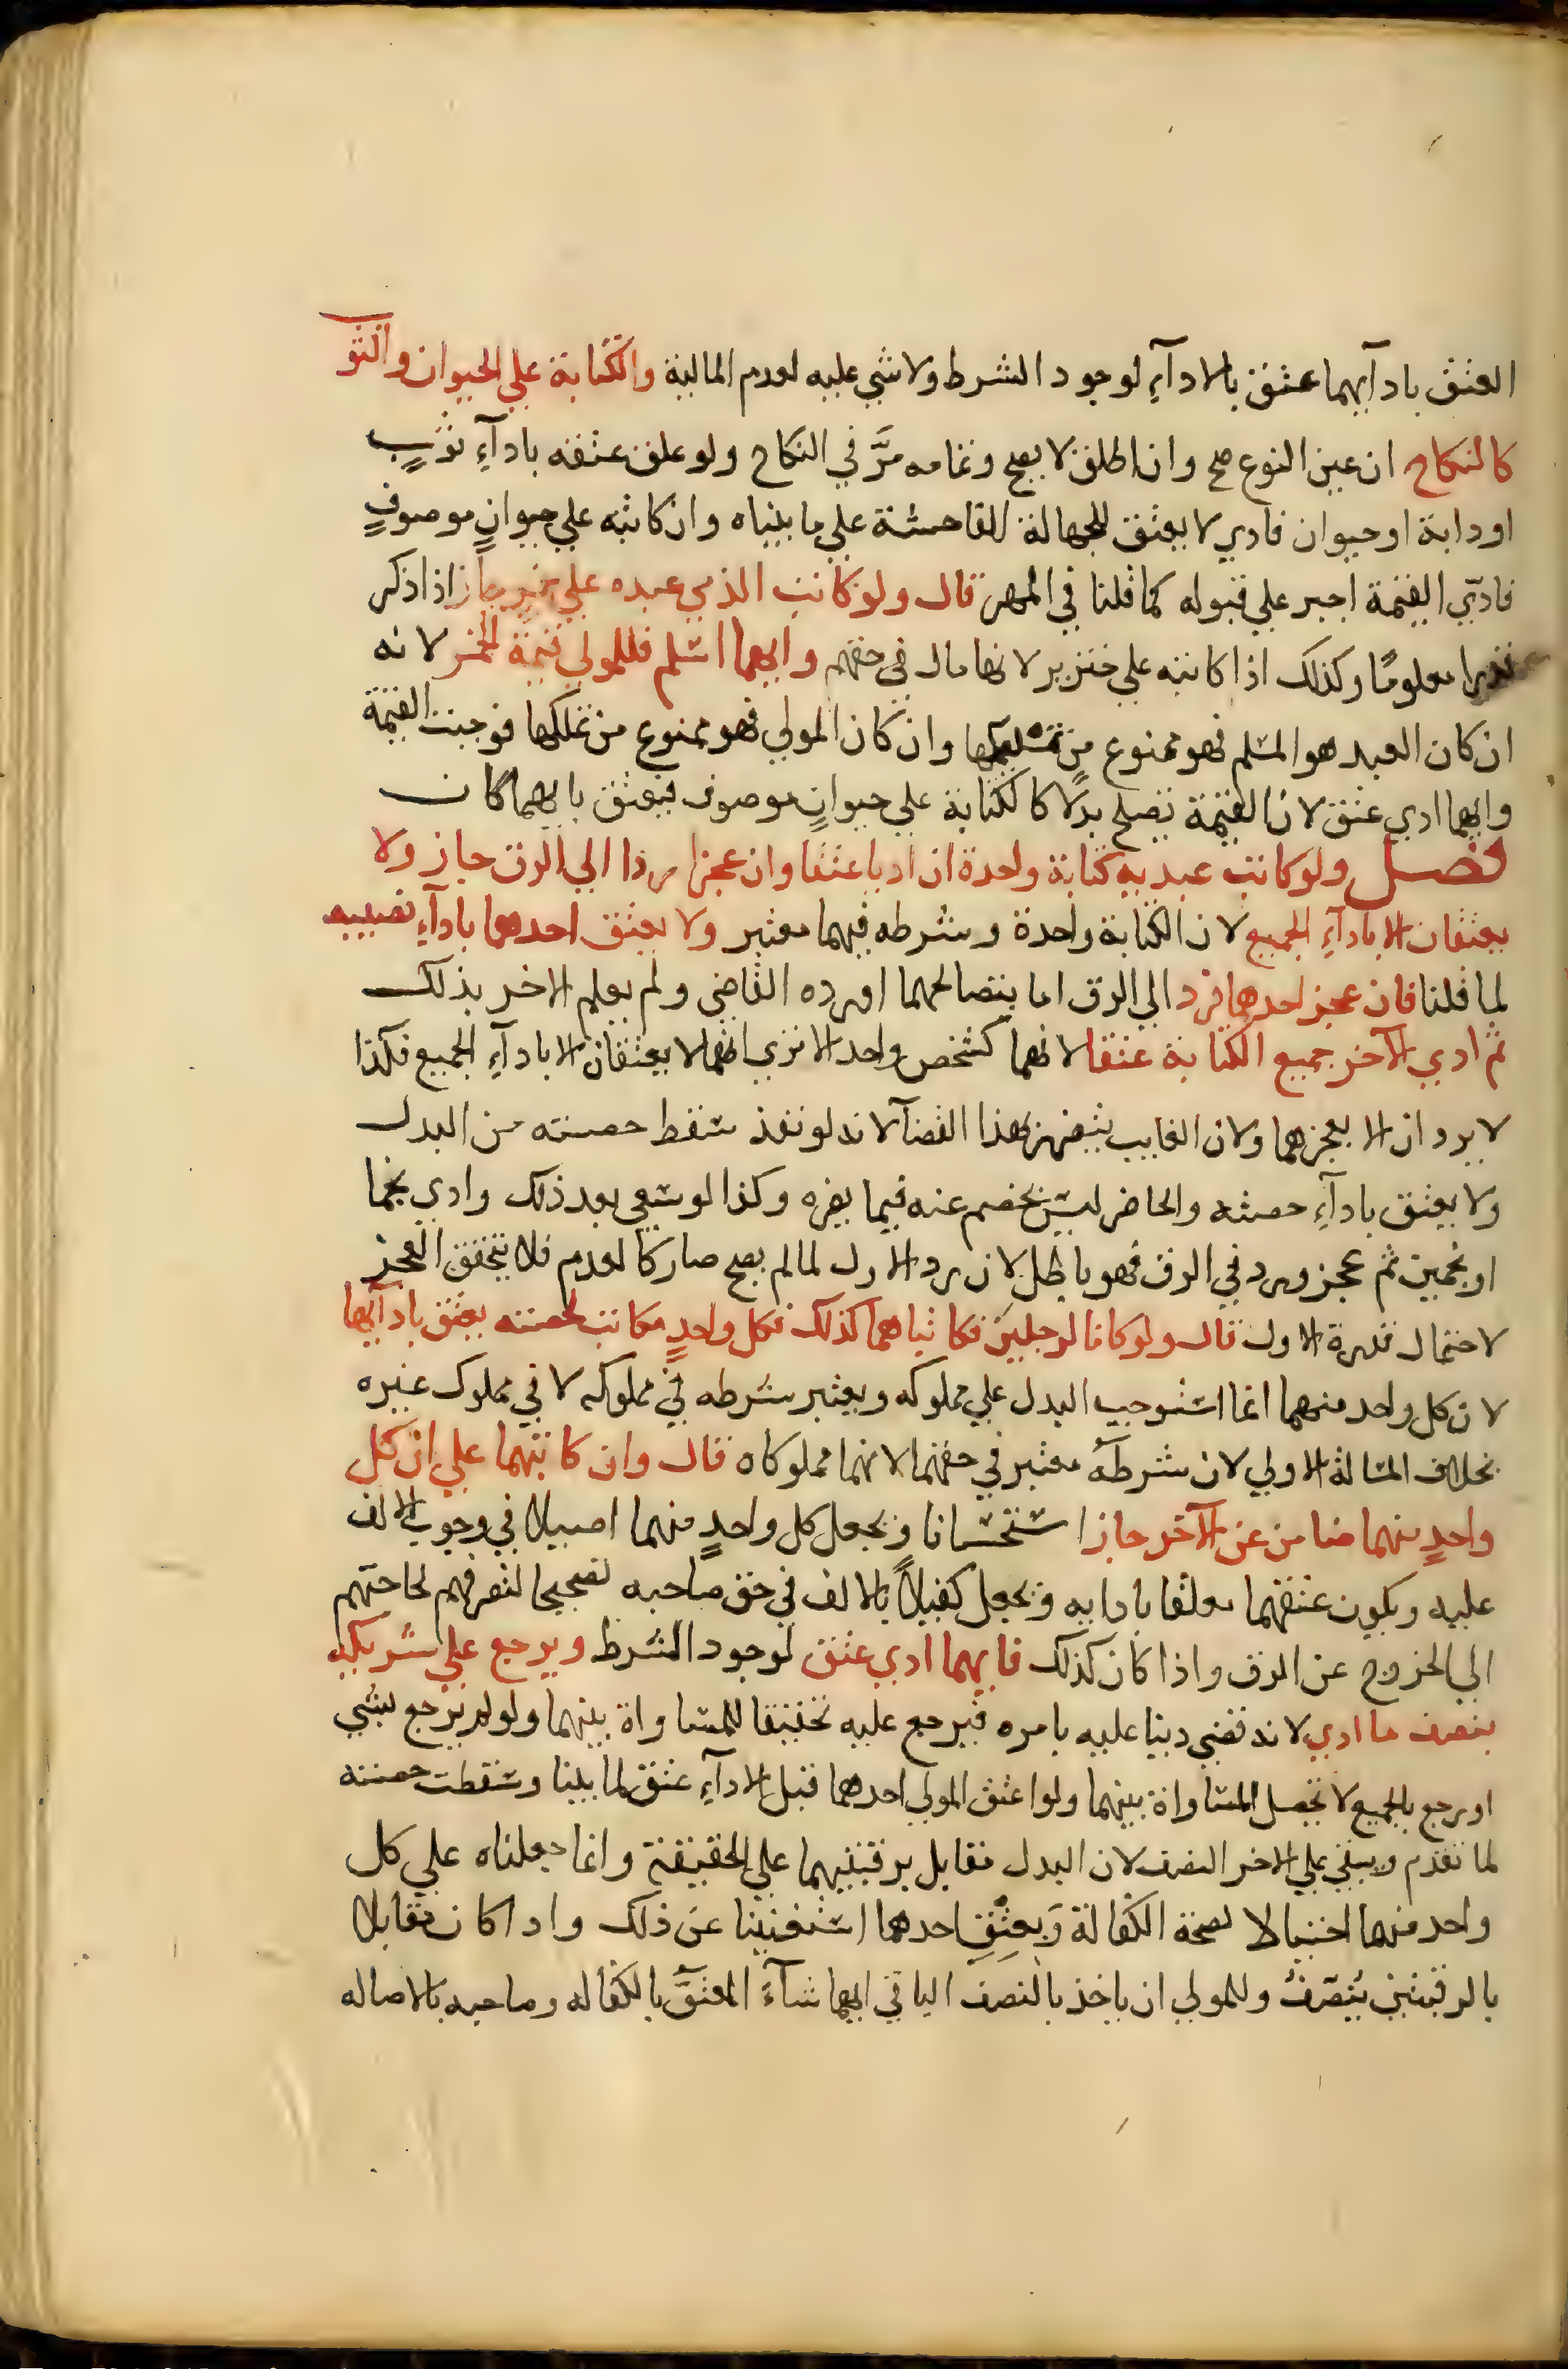 العتق بادآيهما عتق بالادآءِ لوجود الشرط ولا شي عليه لعدم المالية والكتابة علي الحيوان والثو
كالنكاح ان عين النوع صح وان اطلق لا يصح وتمامه مرَّ في النكاح ولو علق عتقه بادآءِ ثوبٍ
او دابة او حيوان فادي لا يعتق للجهالة الفاحشة علي ما بيناه وان كاتبه علي حيوانٍ موصوفٍ
فادّي القيمة اجبر علي قبوله كما قلنا في المهر قال ولو كاتب الذمي عبده علي خمرٍ جاز اذا ذكر
قدرا معلومًا وكذلك اذا كاتبه علي خنزير لانها مال في حقهم وايهما اسلم فللمولي قيمة الخمر لانه
ان كان العبد هو المسلم فهو ممنوع من تسليمها وان كان المولي فهو ممنوع من تملكها فوجبت القيمة
وايهما ادي عتق لان القيمة تصلح بدلًا كالكتابة علي حيوانٍ موصوف فيعتق بايهما كان
فصل ولو كاتب عبديه كتابة واحدة ان اديا عتقا وان عجزا ردا الي الرق جاز ولا
يعتقان الا بادآءِ الجميع لان الكتابة واحدة وشرطه فيهما معتبر ولا يعتق احدهما بادآءِ نصيبه
لما قلنا فان عجز احدهما فرد الي الرق اما بتصالحهما او رده القاضي ولم يعلم الاخر بذلك
ثم ادي الآخر جميع الكتابة عتقا لانهما كشخص واحد الا تري انهما لا يعتقان الا بادآءِ الجميع فكذا
لا يردان الا بعجزهما ولان الغايب يتضرر بهذا القضآ لانه لو نفذ سقط حصته من البدل
ولا يعتق بادآءِ حصته والحاضر ليس بخصم عنه فيما يضره وكذا لو سعي بعد ذلك وادي نجما
او نجمين ثم عجز ورد في الرق فهو باطل لان رد الاول لما لم يصح صار كالعدم فلا يتحقق العجز
لاحتمال قدرة الاول قال ولو كانا لرجلين فكاتباهما كذلك فكل واحدٍ مكاتب لحصته يعتق بادآيها
لان كل واحد منهما انما استوجب البدل علي مملوكه ويعتبر شرطه في مملوكه لا في مملوك غيره
بخلاف المسالة الاولي لان شرطه معتبر في حقهما لانهما مملوكاه قال وان كاتبهما علي ان كل
واحدٍ منهما ضامن عن الآخر جاز استحسانا ويجعل كل واحدٍ منهما اصيلا في وجوب الالف
عليه ويكون عتقهما معلقا بادايه ويجعل كفيلاً بالالف في حق صاحبه تصحيحا لتصرفهم لحاجتهم
الي الخروج عن الرق واذا كان كذلك فايهما ادي عتق لوجود الشرط ويرجع علي شريكه
بنصف ما ادي لانه قضي دينا عليه بامره فيرجع عليه تحقيقا للمساواة بينهما ولو لم يرجع بشي
او يرجع بالجميع لا تحصل المساواة بينهما ولو اعتق المولي احدهما قبل الادآءِ عتق لما بينا وسقطت حصته
لما تقدم ويبقي علي الاخر النصف لان البدل مقابل برقبتيهما علي الحقيقة وانما جعلناه علي كل
واحد منهما احتيالا لصحة الكفالة وَبعتْقِ احدهما استغنينا عن ذلك واذا كان مقابلا
بالرقبتين يُتنصّفُ وللمولي ان ياخذ بالنصف الباقي ايهما شآءَ المعتَق بالكفاله وصاحبه بالاصاله